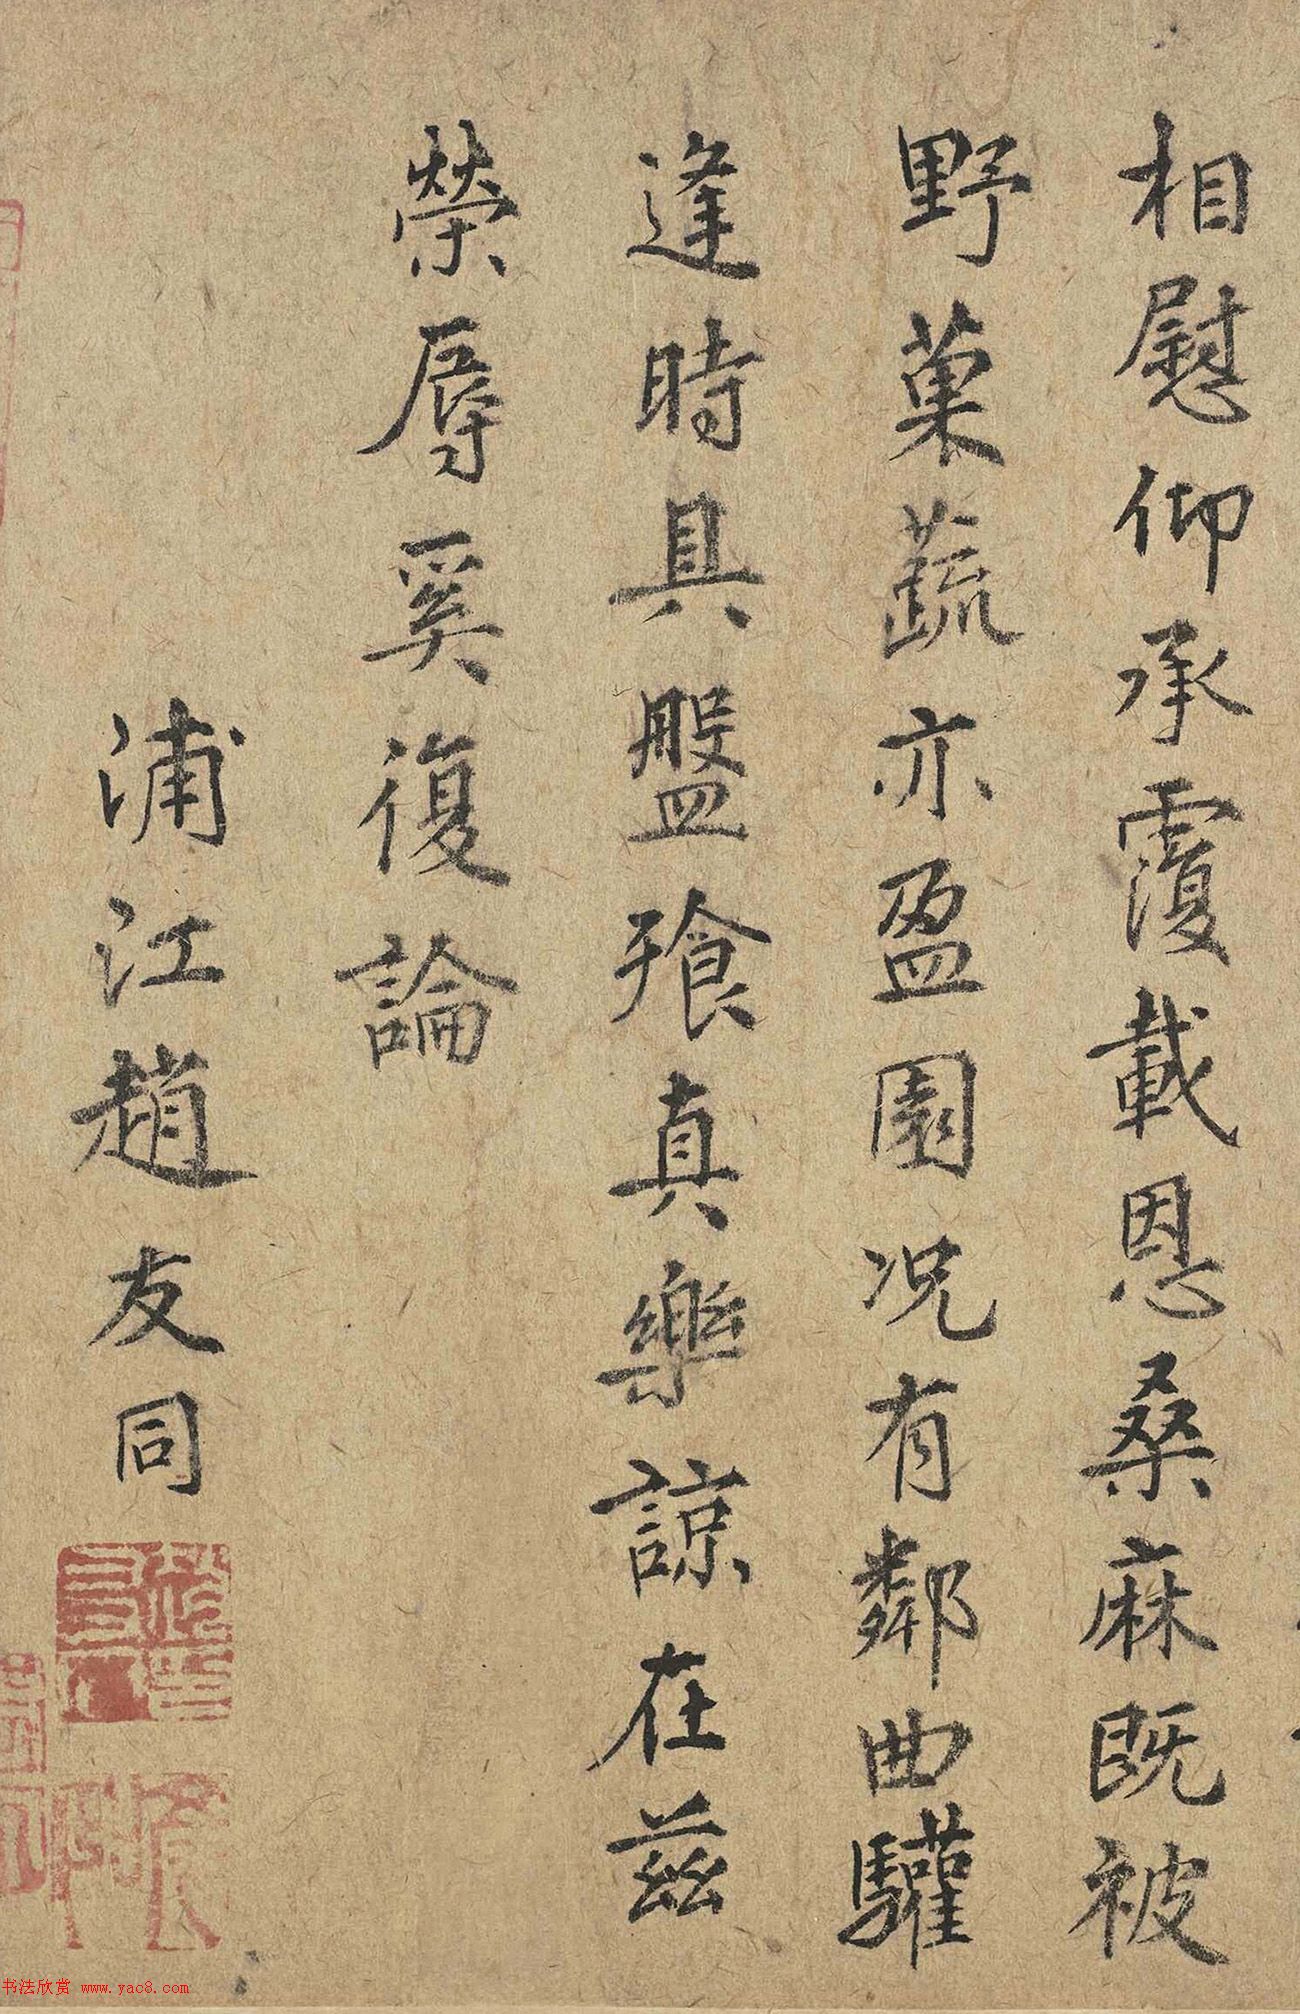 相慰仰承覆載恩桑麻既被
野菓蔬亦盈園况有鄰曲驩
逢時具盤飡真樂諒在茲
榮辱奚復論
浦江趙友同
书法欣赏 www.yac8.com